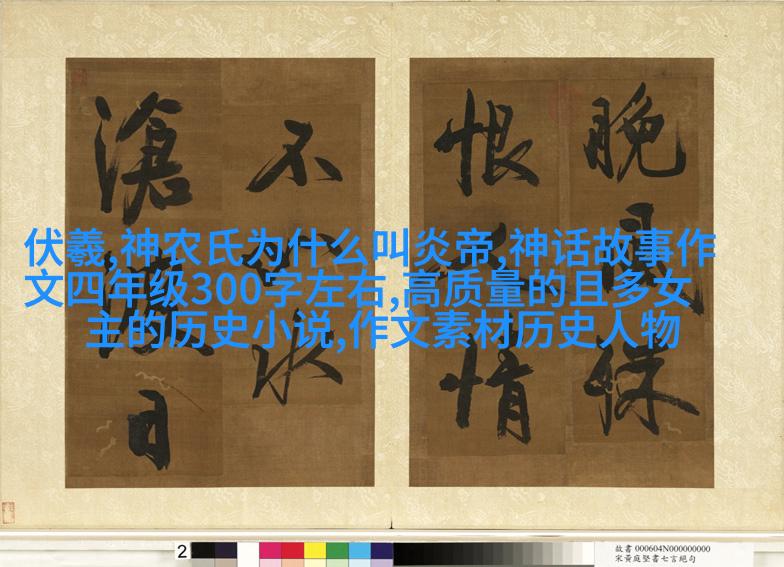 晚 殊
恨 情
不 水
滄 日
伏羲,神农氏为什么叫炎帝,神话故事作
文四年级300字左右,高质量的且多女
主的历史小说,作文素材历史人物
2
故書 000604N000000000
宋黃庭堅書七言絕句